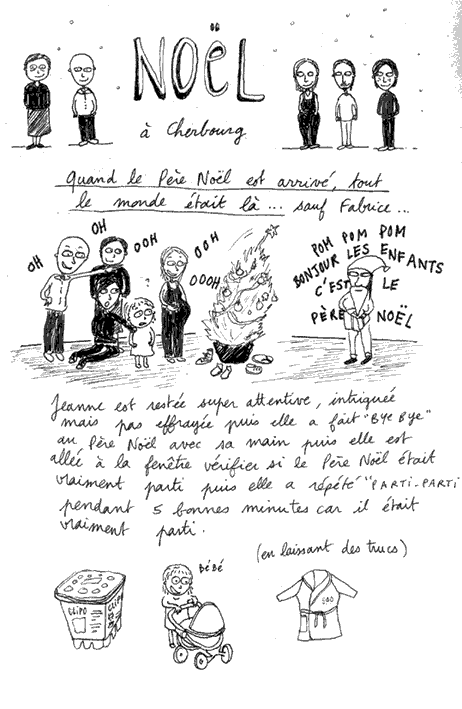 NOËL
à Cherbourg
Quand le Père Noël est arrivé, tout
le monde était là ... sauf Fabrice ...
OH
OH
OOH
OOH
OOOH
POM POM POM
BONJOUR LES ENFANTS
C'EST LE
PÈRE NOËL
Jeanne est restée super attentive, intriguée
mais pas effrayée puis elle a fait "BYE BYE"
au Père Noël avec sa main puis elle est
allée à la fenêtre vérifier si le Père Noël était
vraiment parti puis elle a répété "PARTI-PARTI
pendant 5 bonnes minutes car il était
vraiment parti.
(en laissant des trucs)
BÉBÉ
CLIPO
CLIPO